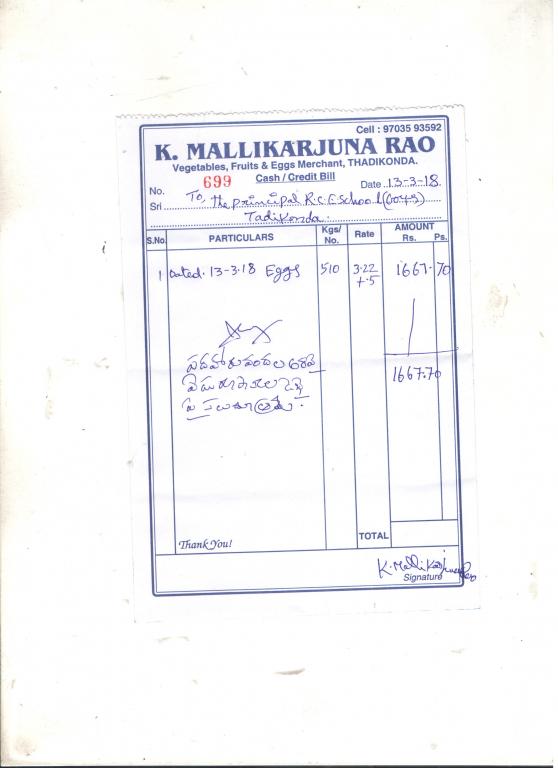 Cell : 97035 93592
K. MALLIKARJUNA RAO
Vegetables, Fruits & Eggs Merchant, THADIKONDA.
Cash / Credit Bill
No. 699 Date 13-3-18.
Sri To, the principal R.C.E School (Boys)
Tadikonda.
S.No. PARTICULARS Kgs/ No. Rate AMOUNT Rs. Ps.
1 Dated. 13-3.18 Eggs 510 3.22 1667. 70
+.5
1667.70
TOTAL
Thank You!
K. Mallikarjuna Rao
Signature